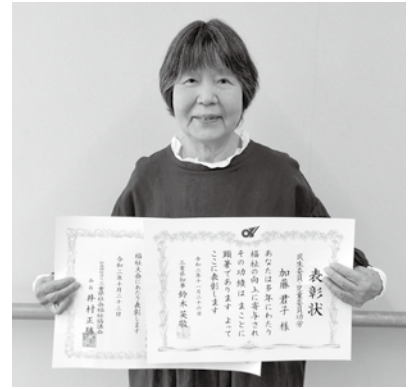 表彰状
民生委員・児童委員功労
加藤君子 様
あなたは多年にわたり
福祉の向上に寄与され
その功績はまことに
顕著であります よって
ここに表彰します
令和二年十一月二十四日
三重県知事 鈴木英敬
福祉大会にあたり表彰します
令和二年十月二十三日
会長 井村正勝